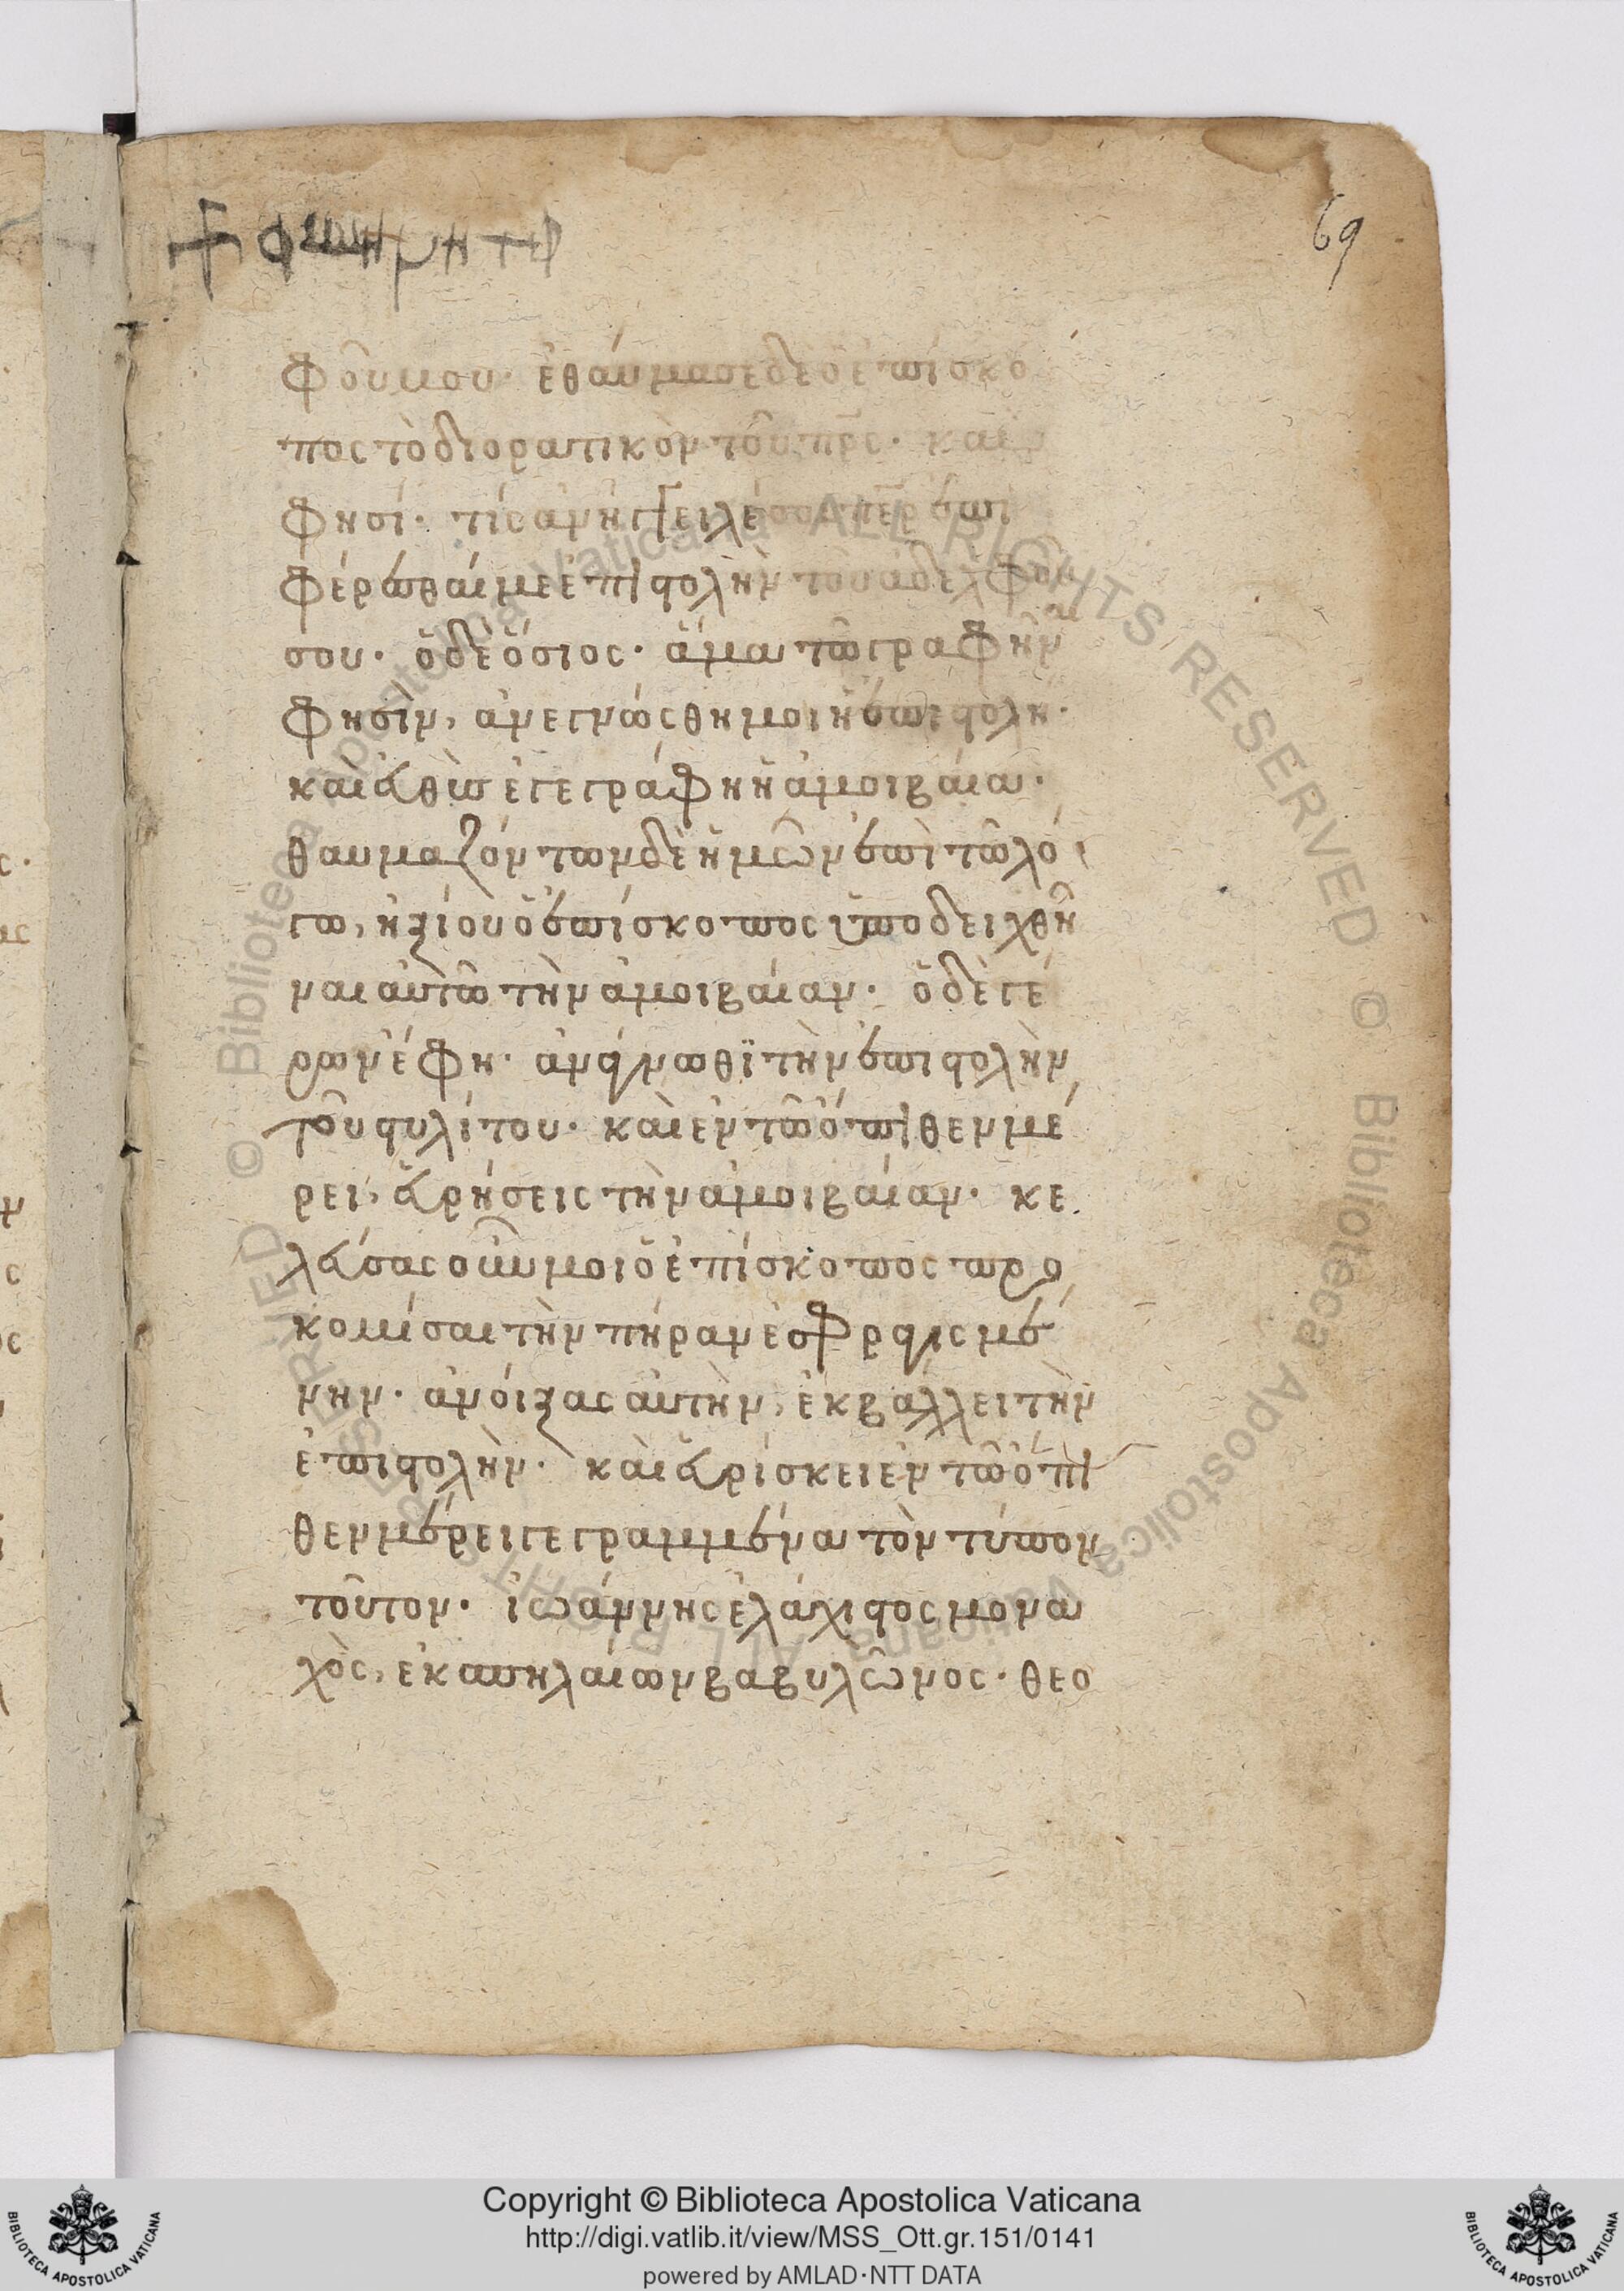 69
φοῦ μου· ἐθαύμασε δὲ ὁ ἐπίσκο
πος τὸ διορατικὸν τοῦ πρς· καὶ
φησί· τίς ἀνήγγειλέ σοι περὶ
φέρεσθαί με ἐπιστολὴν τοῦ ἀδελφοῦ
σου· ὁ δὲ ὅσιος· ἅμα τῶ γραφῆν
φησὶν, ἀνεγνώσθη μοι ἡ ἐπιστολή·
καὶ εὐθὺς ἐγεγράφη ἡ ἀμοιβαία·
θαυμαζόντων δὲ ἡμῶν ἐπὶ τῶ λό
γω, ἠξίου ὁ ἐπίσκοπος ὑποδειχθῆ
ναι αὐτῶ τὴν ἀμοιβαίαν· ὁ δὲ γέ
ρων ἔφη· ἀνάγνωθϊ τὴν ἐπιστολὴν
τοῦ στυλίτου· καὶ ἐν τῶ ὄπισθεν μέ
ρει, εὑρήσεις τὴν ἀμοιβαίαν· κε
λεύσας οὖν μοι ὁ ἐπίσκοπος προ
κομίσαι τὴν πήραν ἐσφραγισμέ
νην· ἀνοίξας αὐτὴν, ἐκβάλλει τὴν
ἐπιστολὴν· καὶ εὑρίσκει ἐν τῶ ὄπι
θεν μέρει γεγραμμένα τὸν τύπον
τοῦτον· ἰωάννης ἐλάχιστος μονα
χὸς, ἐκ σπηλαίων βαβυλῶνος· θεο
© Biblioteca Apostolica Vaticana ALL RIGHTS RESERVED © Biblioteca Apostolica Vaticana ALL RIGHTS RESERVED
Copyright © Biblioteca Apostolica Vaticana
http://digi.vatlib.it/view/MSS_Ott.gr.151/0141
powered by AMLAD·NTT DATA
BIBLIOTECA APOSTOLICA VATICANA
BIBLIOTECA APOSTOLICA VATICANA